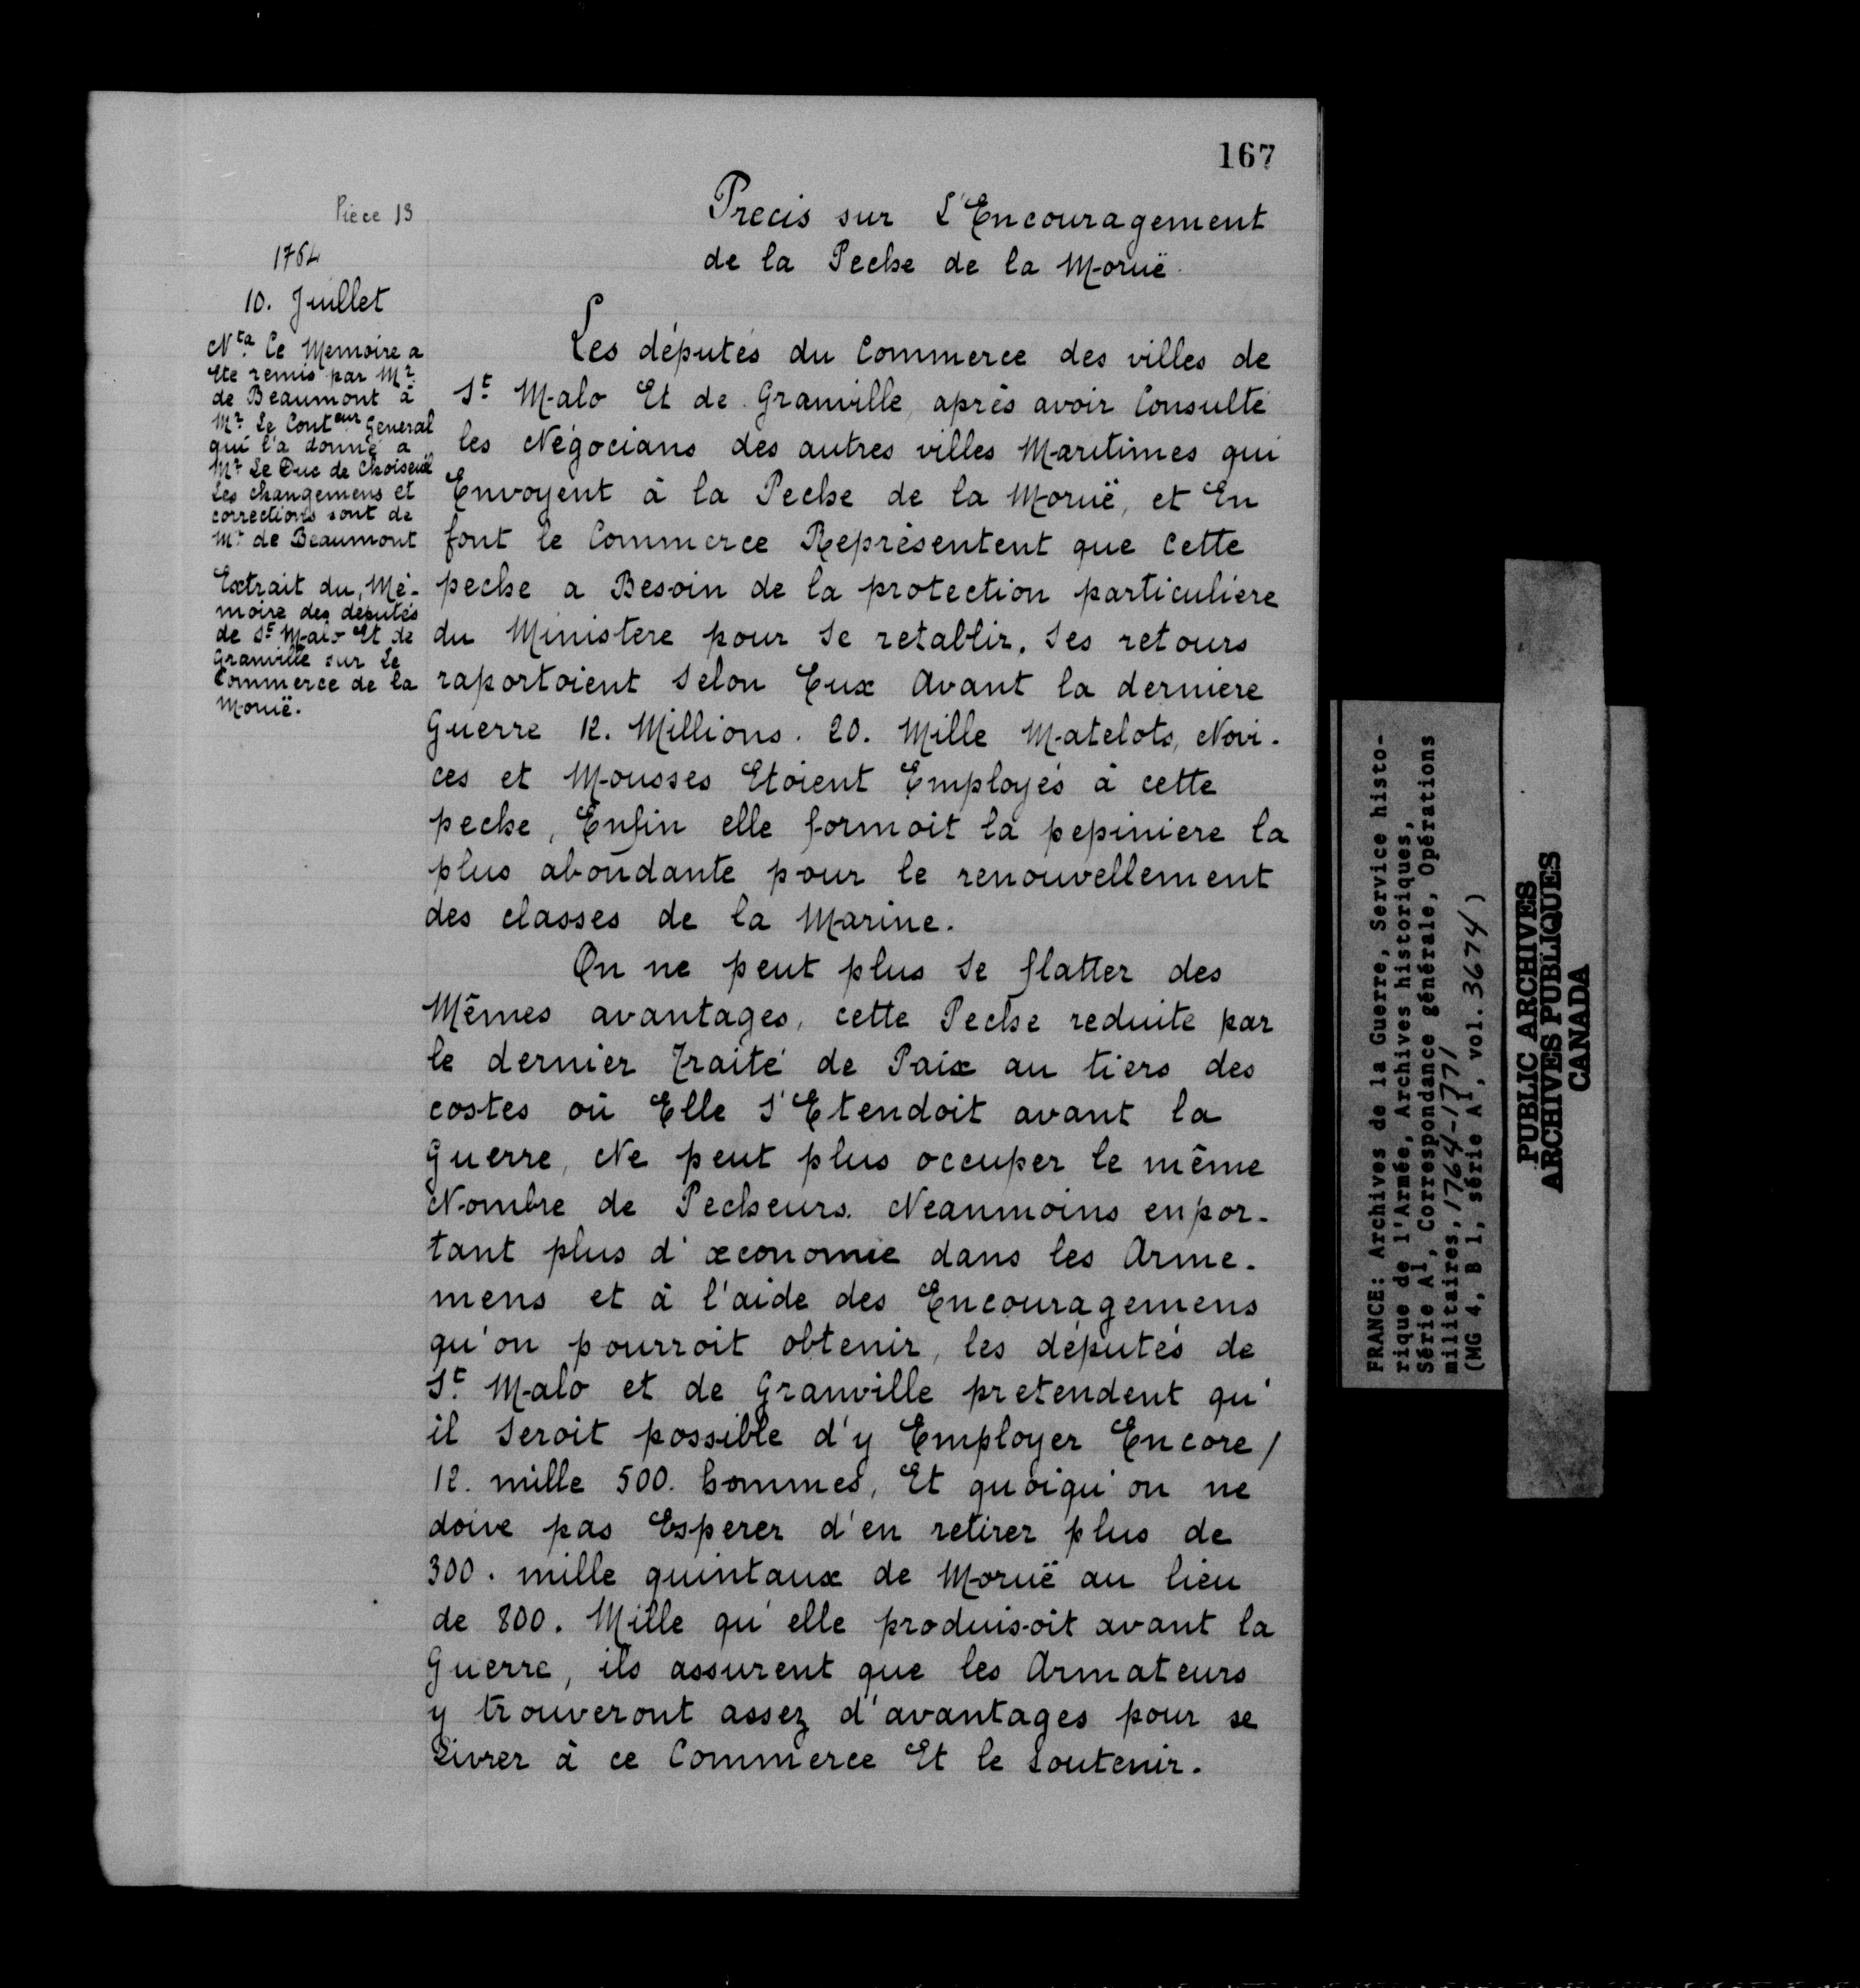 167
Piece 13
1764
10. Juillet
Nta. Ce Memoire a
Ete remis par Mr
de Beaumont à
Mr Le Conteur General
qui l'a donné a
Mr Le Duc de Choiseuil
Les changemens et
corrections sont de
Mr de Beaumont
Extrait du, Mé-
moire des députés
de St Malo Et de
Granville sur Le
Commerce de la
Moruë.
Precis sur L'Encouragement
de la Peche de la Moruë.
Les députés du Commerce des villes de
St Malo Et de Granville, après avoir Consulté
les Négocians des autres villes Maritimes qui
Envoyent à la Peche de la Moruë, et En
font le Commerce Représentent que cette
peche a Besoin de la protection particuliére
du Ministere pour Se retablir. Ses retours
raportoient Selon Eux avant la derniere
Guerre 12. Millions. 20. Mille Matelots, Novi-
ces et Mousses Etoient Employés à cette
peche, Enfin elle formoit la pepiniere la
plus abondante pour le renouvellement
des classes de la Marine.
On ne peut plus Se flatter des
Mêmes avantages, cette Peche reduite par
le dernier Traité de Paix au tiers des
costes où Elle S'Etendoit avant la
Guerre, Ne peut plus occuper le même
Nombre de Pecheurs. Neanmoins enpor-
tant plus d'œconomie dans les Arme-
mens et à l'aide des Encouragemens
qu'on pourroit obtenir, les députés de
St Malo et de Granville pretendent qu'
il Seroit possible d'y Employer Encore /
12. mille 500. hommes, Et quoiqu'on ne
doive pas Esperer d'en retirer plus de
300. mille quintaux de Moruë au lieu
de 800. Mille qu'elle produisoit avant la
Guerre, ils assurent que les Armateurs
y trouveront assez d'avantages pour se
Livrer à ce Commerce Et le Soutenir.
FRANCE: Archives de la Guerre, Service histo-
rique de l'Armée, Archives historiques,
Série A1, Correspondance générale, Opérations
militaires, 1764-1771
(MG 4, B 1, série A1, vol. 3674)
PUBLIC ARCHIVES
ARCHIVES PUBLIQUES
CANADA